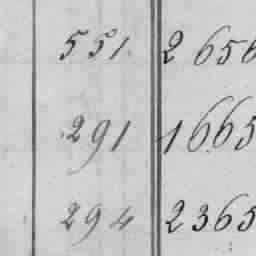 551 2656
291 1665
294 2365